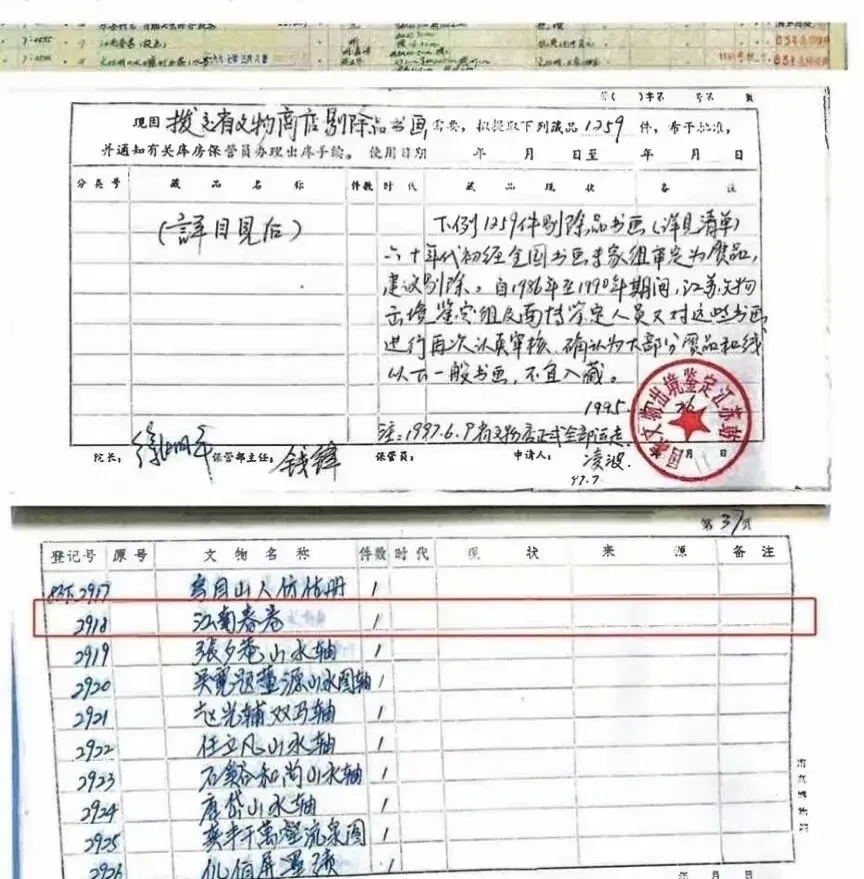 现因 拨交省文物商店剔除品书画 需要，拟提取下列藏品1259件，希予批准，
并通知有关库房保管员办理出库手续。 使用日期 年 月 日至 年 月 日
分类号 藏品名称 件数 时代 藏品现状 备注
（詳目見后）
下列1259件剔除品书画（详见清单）
六十年代初经全国书画专家组审定为赝品，
建议剔除。自1986年至1990年期间，江苏文物
出境鉴定组及南博鉴定人员又对这些书画
进行再次认真审核，确认为大部分赝品和线
以下一般书画，不宜入藏。
1995.
注：1997.6.9省文物店正式全部运走
院长： 徐湖平 保管部主任： 钱锋 保管员： 申请人： 凌波 月 日
97.7
文物出境鉴定江苏站
第37页
登记号 原号 文物名称 件数 时代 现状 来源 备注
2917 仿古册 1
2918 江南春卷 1
2919 張夕菴山水轴 1
2920 吴寬题董源山水图轴 1
2921 赵光辅双马轴 1
2922 任立凡山水轴 1
2923 石谿和尚山水轴 1
2924 唐岱山水轴 1
2925 龚半千萬壑流泉图 1
2926 1
年 月 日